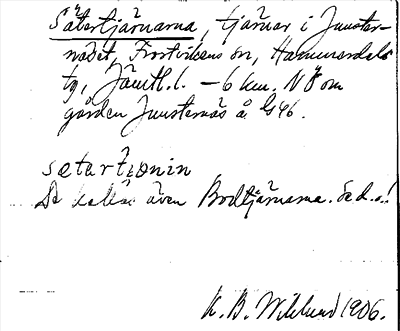 Sätertjärnarna, tjärnar i Junster-
näset, Frostvikens sn, Hammerdals
tg, Jämtl. l. – 6 km. NÖ om
gården Junsternäs å G46.
sætartiɵnin
De kallas även Bodtjärnarna. Se d. o.!
K. B. Wiklund 1906.